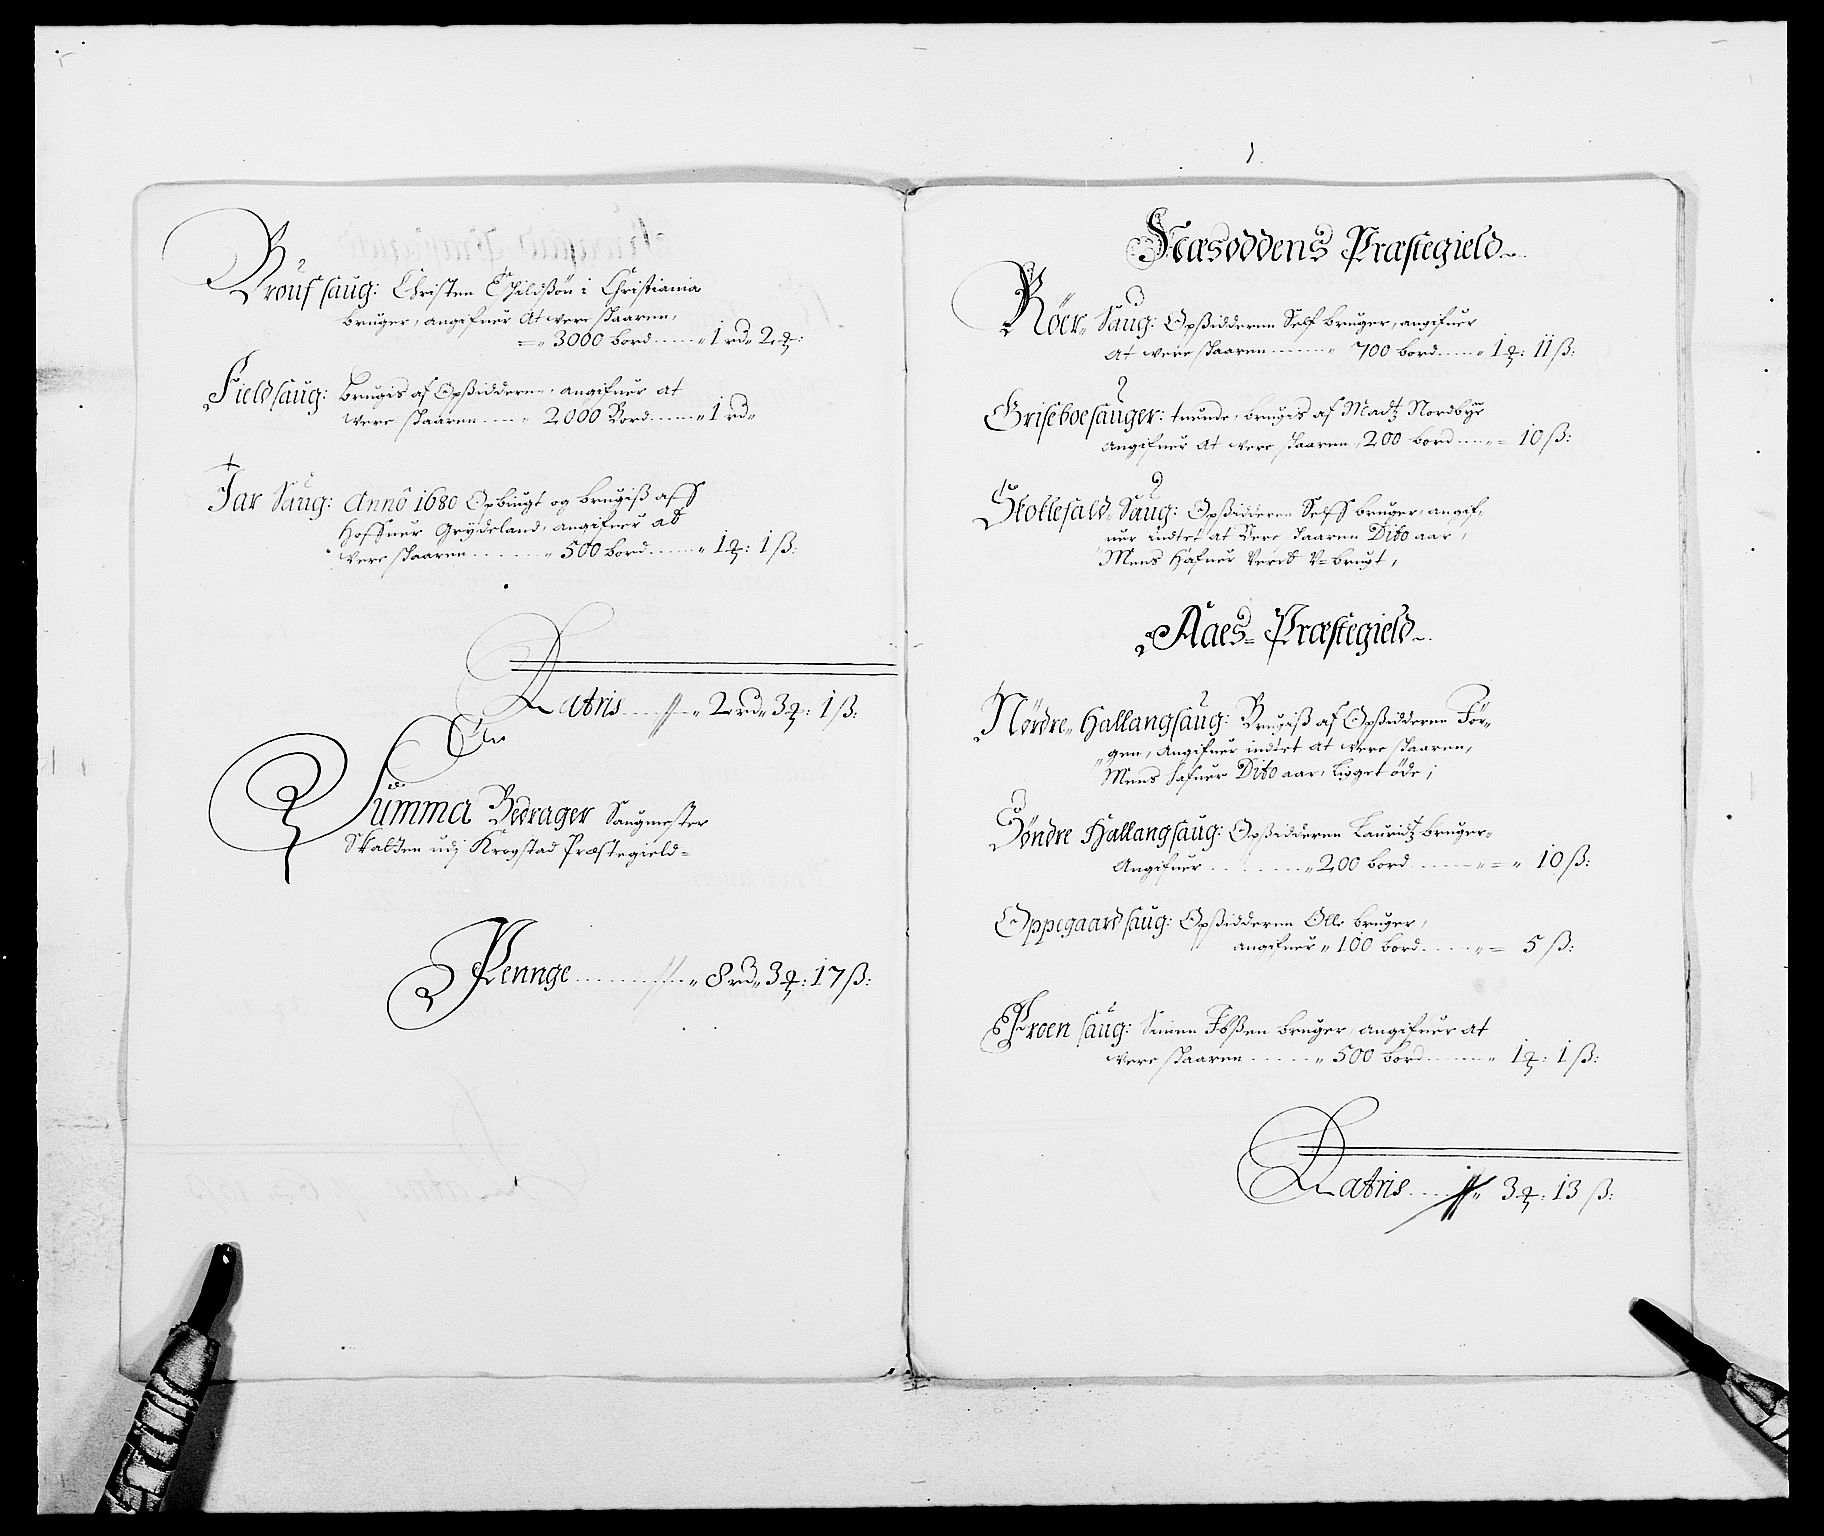 Broüs saug: Christen Eskildßøn i Christiania
bruger, angifuer at were skaaren,
3000 bord ..... 1 rd 2 ꝗ:
Field saug: brugis af Opsidderne, angifuer at
were skaaren .... 2000 Bord ..... 1 rd
Jar Saug: Annô 1680 Opbugt og brugiß aff
Hoffner Grydeland, angifuer at
were skaaren ....... 500 bord ..... 1 ꝗ: 1 ß:
Latris ... 2 rd 3 ꝗ: 1 ß:
Summa Bedrager Saugmester
Skatten udj Krogstad Præstegield
Pennge ......... 8 rd 3 ꝗ: 17 ß:
Næsoddens Præstegield
Röer Saug: Opsidderne Self bruger, angifuer
at were skaaren ...... 700 bord .... 1 ꝗ: 11 ß:
Griseboe sauger: tuende, bruges af Madtz Nordbye
angifuer at were skaaren, 200 bord .... 10 ß:
Saug: Opsidderne Selff bruger, angif-
uer indtet at Vere skaaren Dito aar,
Mens hafuer Verit V-brugt,
Aaes Præstegield
Nördre Hallang saug: Brugiß af Opsidderne Jör-
gen, Angifuer indtet at were skaaren,
Mens hafuer Dito aar, ligget öde;
Söndre Hallang saug: Opsidderne Lauridtz bruger
Angifuer ........ 200 bord ....... 10 ß:
Oppegaard saug: Opsidderne Olle bruger,
angifuer 100 bord ..... 5 ß:
Froen saug: Simen Ibsen bruger, angifuer at
were skaaren ...... 500 bord ....... 1 ꝗ: 1 ß:
Latris .... 3 ꝗ: 13 ß: